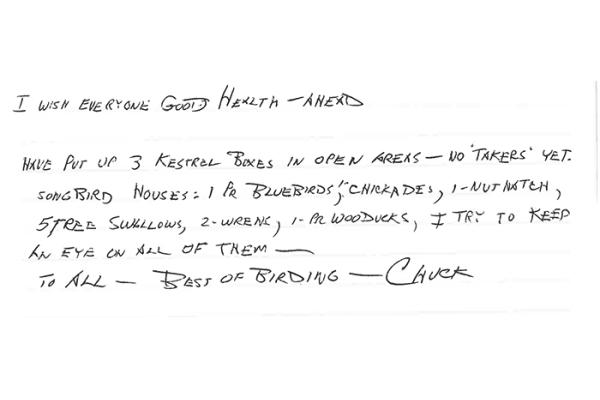 I WISH EVERYONE GOOD HEALTH - AHEAD
HAVE PUT UP 3 KESTREL BOXES IN OPEN AREAS - NO 'TAKERS' YET.
SONGBIRD HOUSES: 1 PR BLUEBIRDS, CHICKADES, 1-NUTHATCH,
5 TREE SWALLOWS, 2-WRENS, 1-PR WOODUCKS, I TRY TO KEEP
AN EYE ON ALL OF THEM —
TO ALL - BEST OF BIRDING - CHUCK